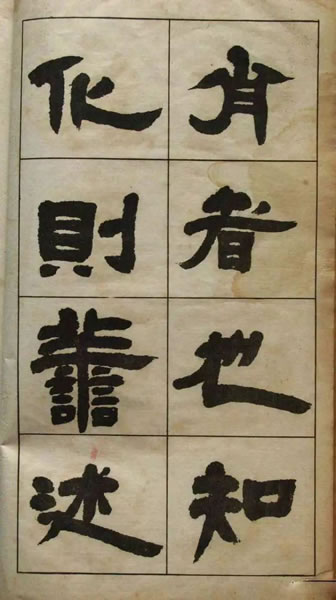 肖者也知
化則譱述